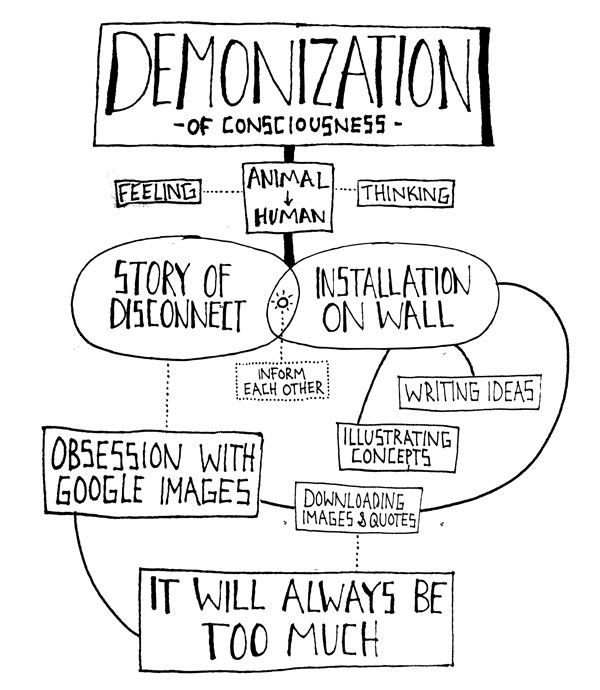 DEMONIZATION
-OF CONSCIOUSNESS-
FEELING
ANIMAL
↓
HUMAN
THINKING
STORY OF
DISCONNECT
INSTALLATION
ON WALL
INFORM
EACH OTHER
WRITING IDEAS
ILLUSTRATING
CONCEPTS
OBSESSION WITH
GOOGLE IMAGES
DOWNLOADING
IMAGES & QUOTES
IT WILL ALWAYS BE
TOO MUCH